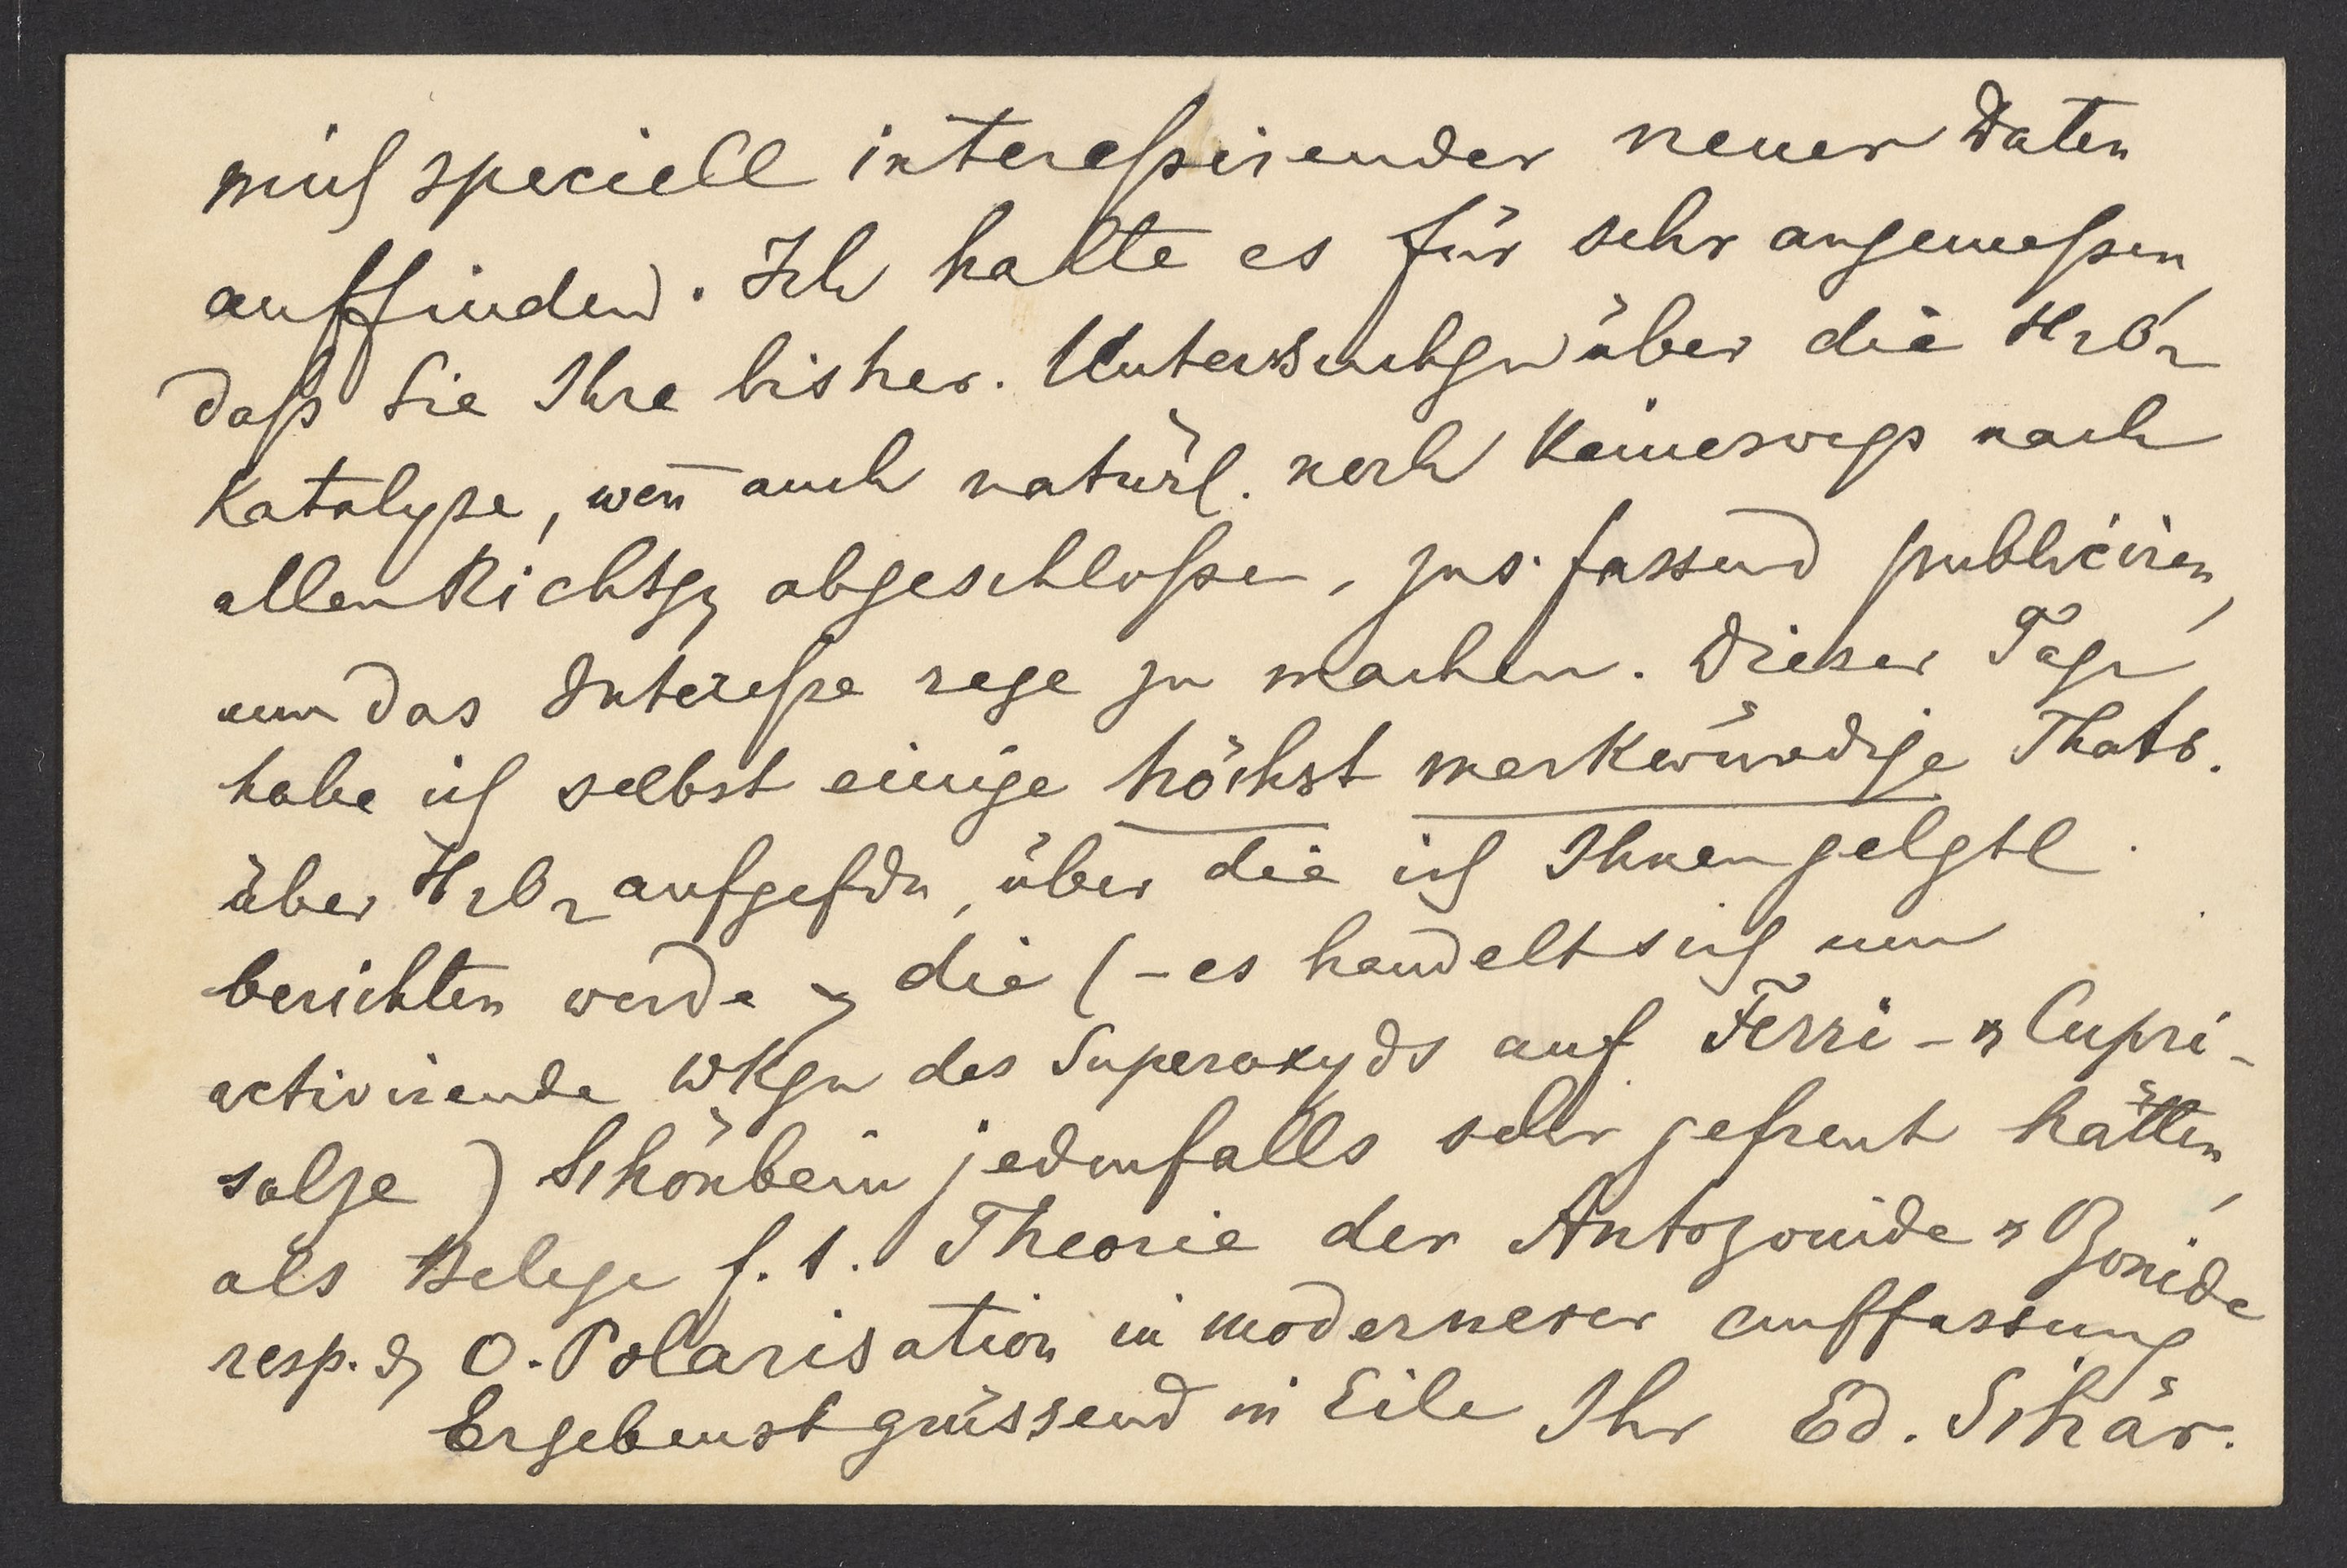 mich speciell interessirender neuer Daten
auffinden. Ich halte es für sehr angemessen,
daß Sie Ihre bisher. Untersuchgn über die H2O2
Katalyse, weñ auch natürl. noch keineswegs nach
allen Richtgn abgeschlossen, zus.fassend publiciren,
um das Interesse rege zu machen. Dieser Tage
habe ich selbst einige höchst merkwürdige Thats.
über H2O2 aufgefdn, über die ich Ihnen gelgtl.
berichten werde & die (– es handelt sich um
activirende Wkgn des Superoxyds auf Ferri- & Cupri-
salze) Schönbein jedenfalls sehr gefreut hätten,
als Belege f. s. Theorie der Antozonide & Ozonide
resp. d. O-Polarisation in modernerer Auffassung
Ergebenst grüssend in Eile Ihr Ed. Schär.